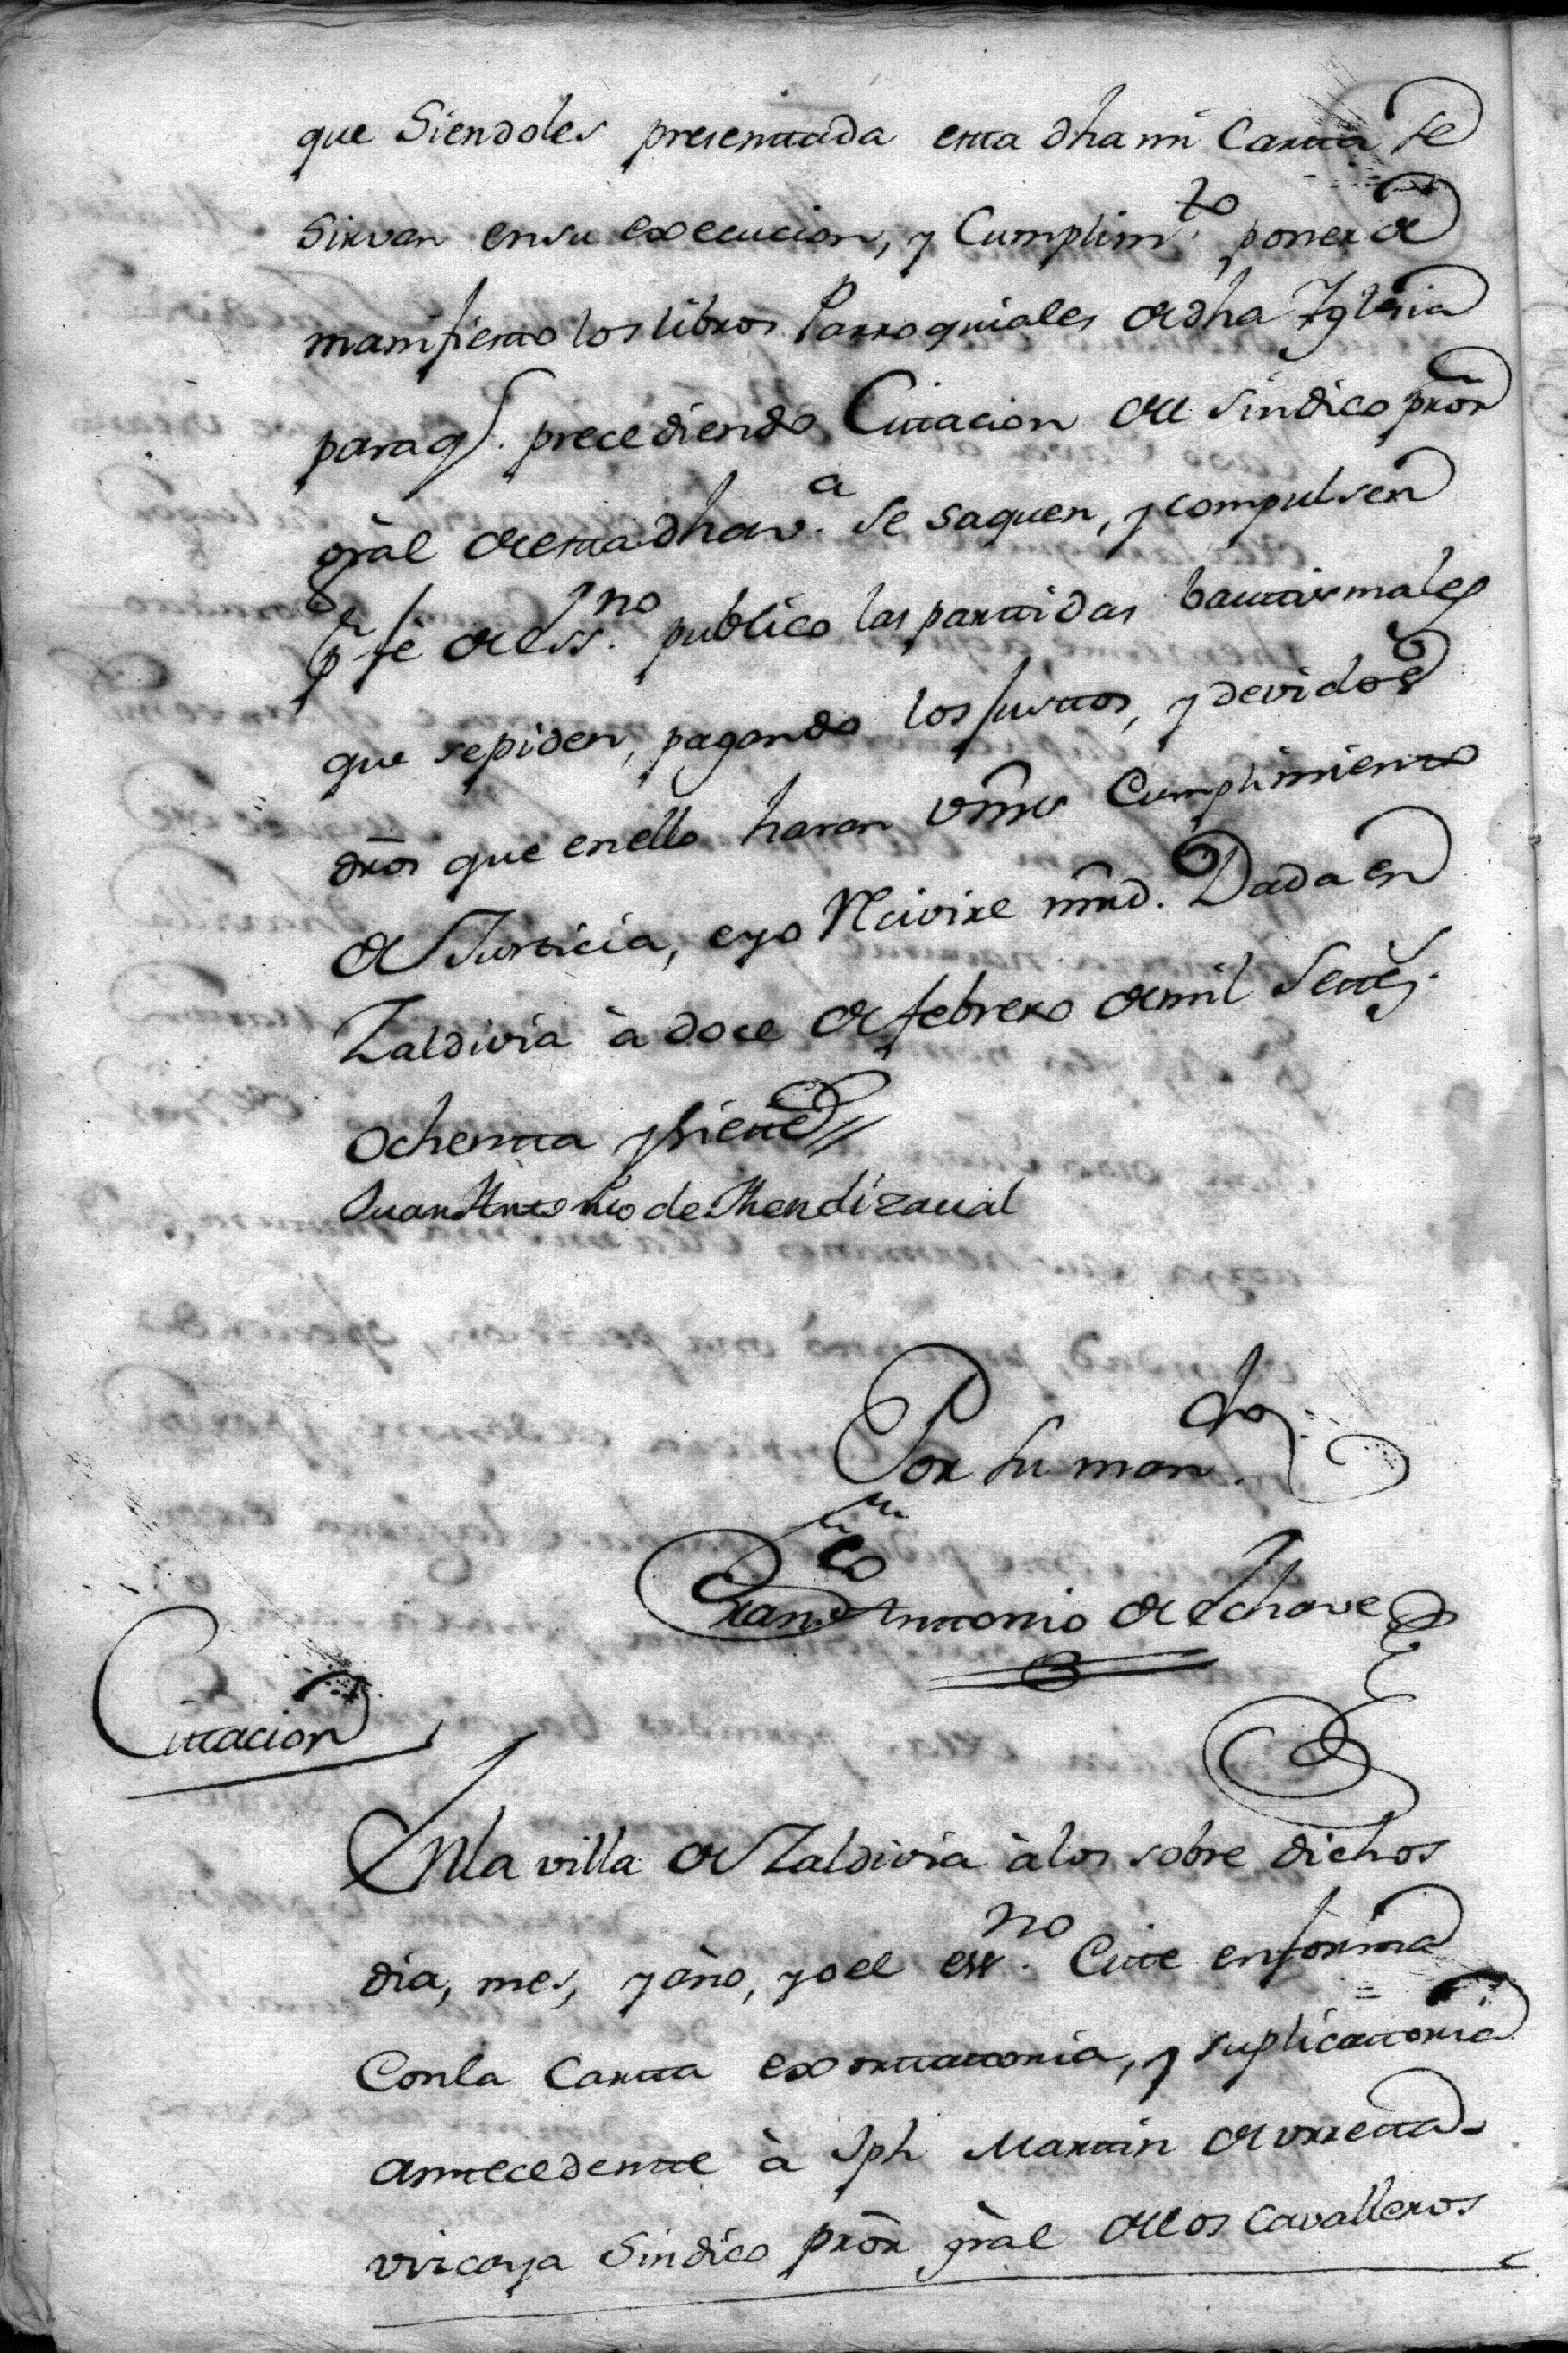 que Siendoles presenttada estta dha mi Cartta se
Sirvan en su execucion, y Cumplim.to poner de
manifiesto los libros Parroquiales de dha Iglesia
para q.e precediendo Cittacion del sindico pror
gral de estta dha v.a se saquen, y compulsen
p.r fé de ess.no publico las parttidas bauttismales
que se piden, pagando los justtos, y devidos
dros que en ello haran vms Cumplimiento
de Justicia, e yo Recivire mrd. Dada en
Zaldivia à doce de febrero de mil Settes.
ochentta y siette
Juan Antonio de Mendizaval
Por su man.do
Fran.co Anttonio de Echave
Cittacion
En la villa de Zaldivia à los sobre dichos
dia, mes, y año, yo el ess.no Citte en forma
Con la Cartta exorttattoria, y suplicattoria
anttecedentte à Jph Marttin de Urretta-
vizcaya Sindico pror gral de los Cavalleros